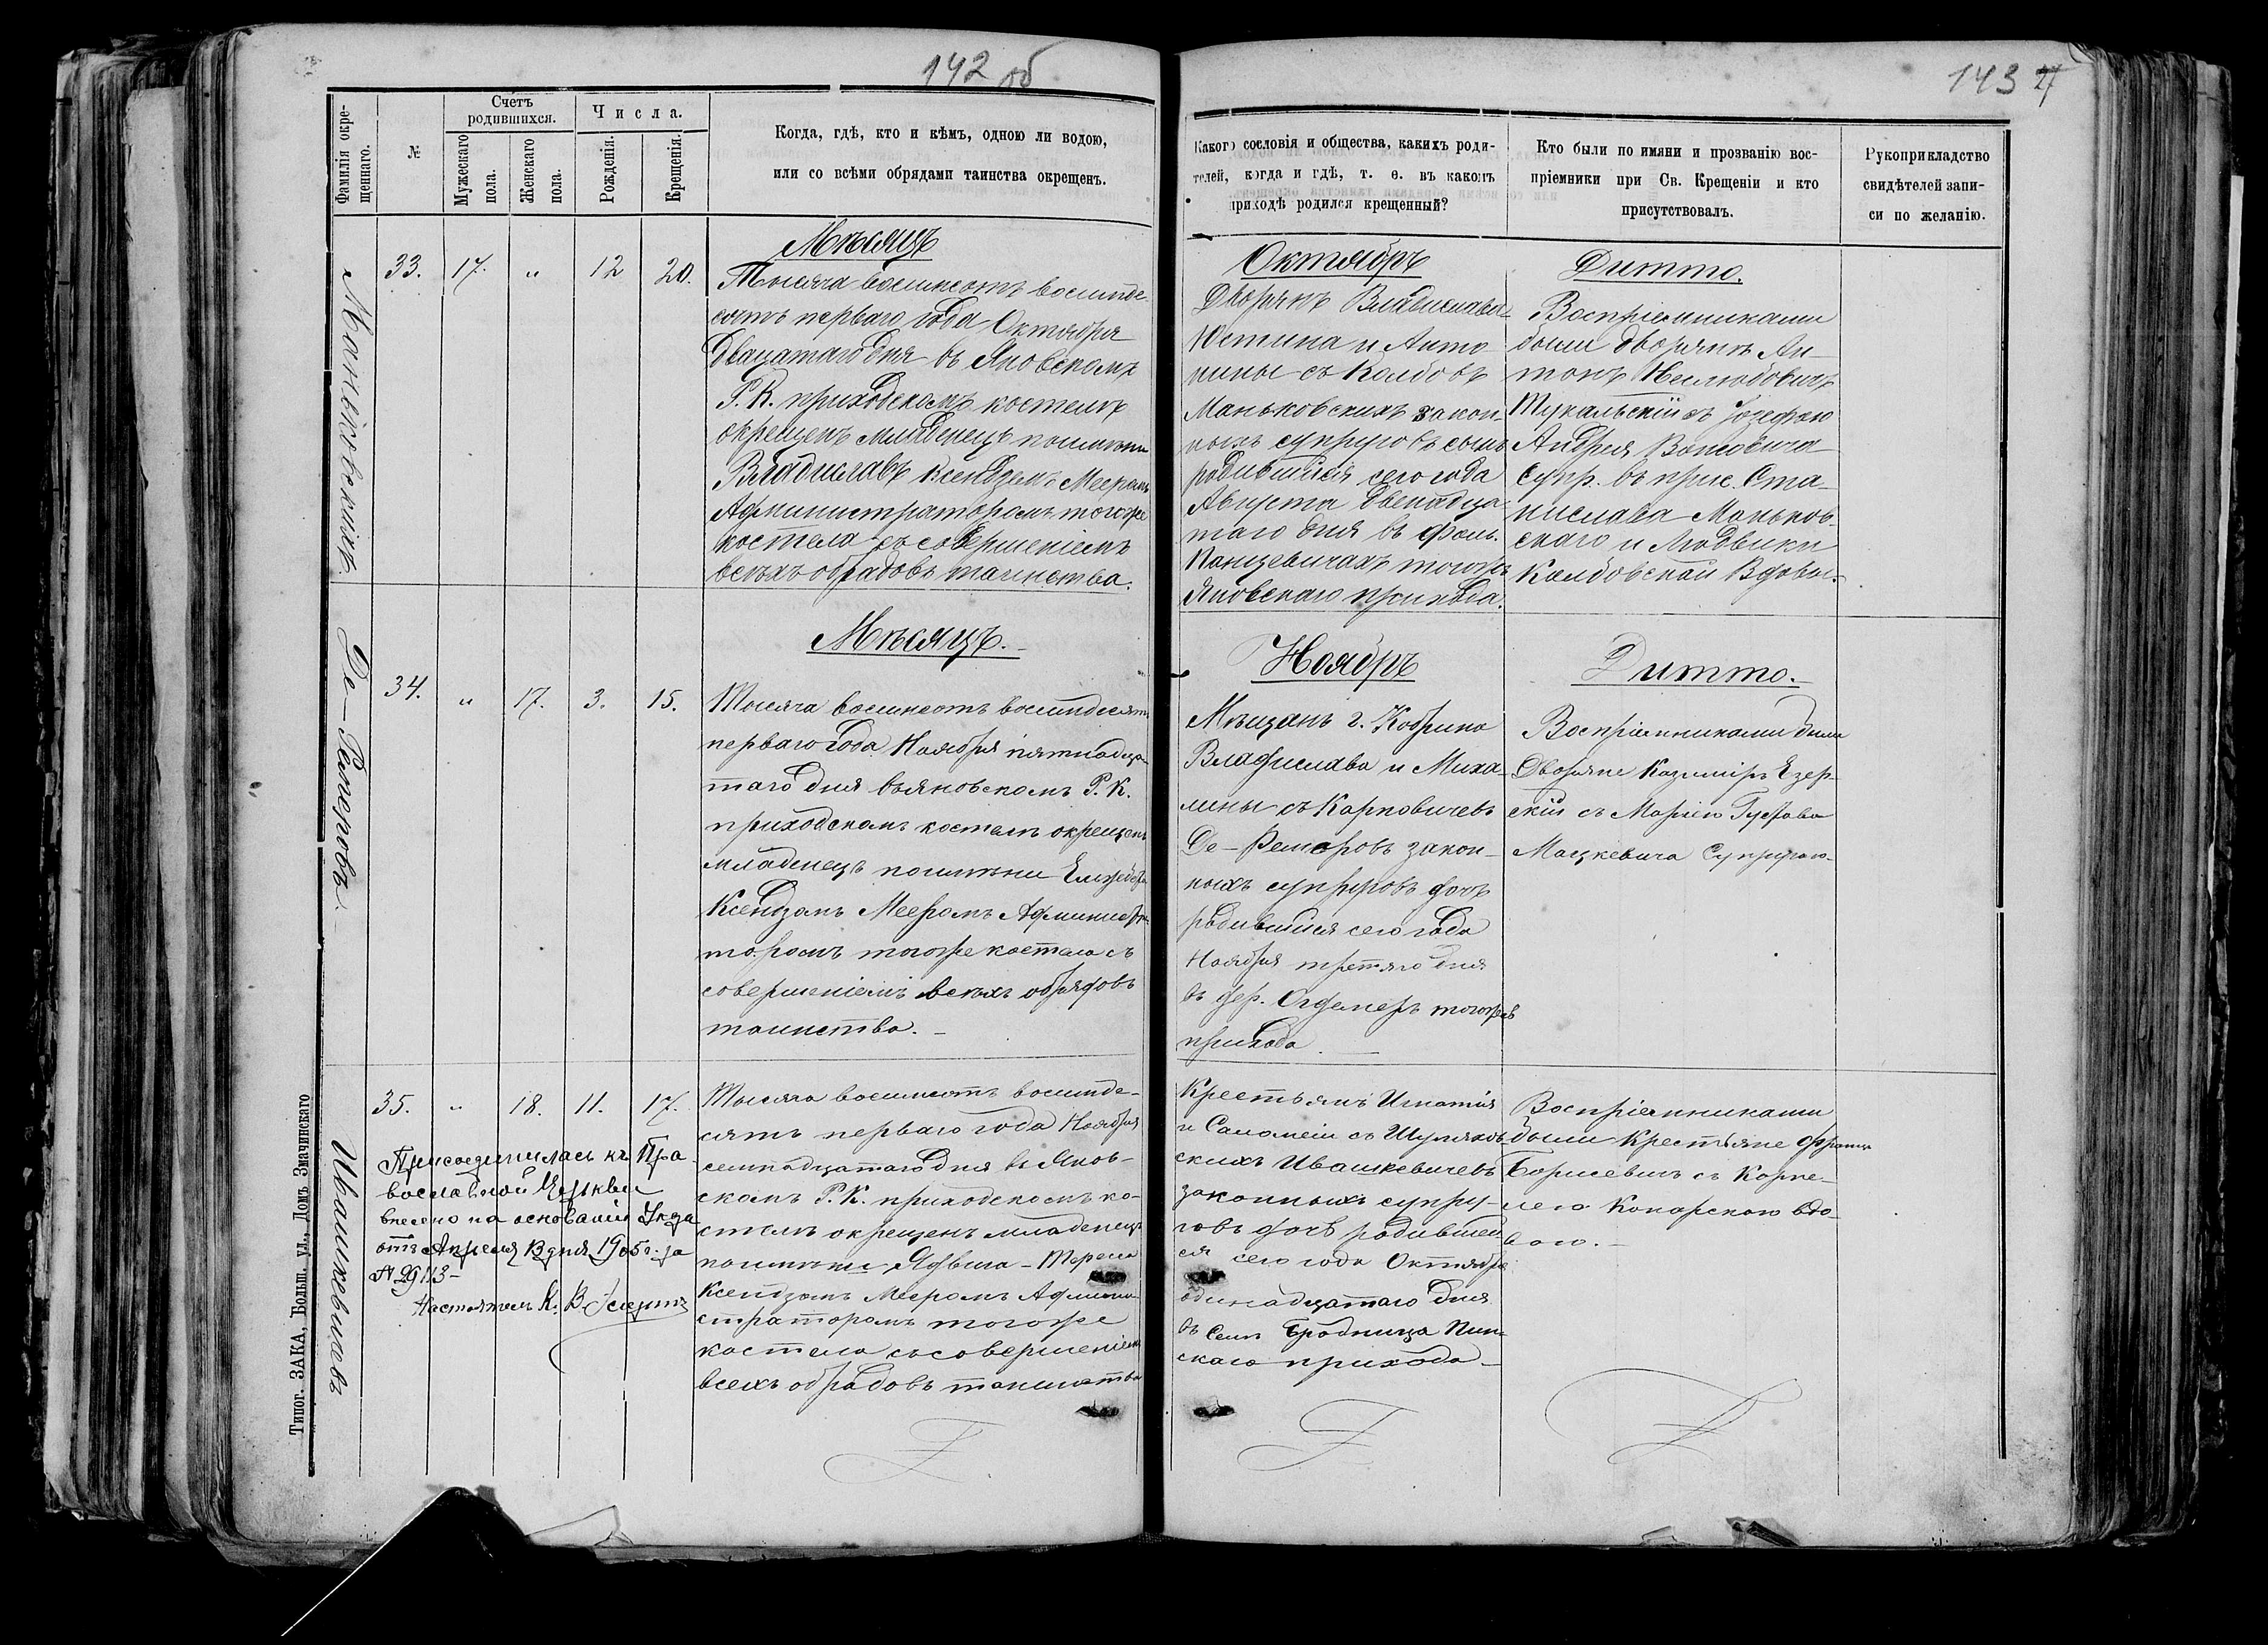 142 об
143 4
Фамилія окре-
щеннаго.
№
Счетъ
родившихся.
Мужескаго
пола.
Женскаго
пола.
Числа.
Рожденія.
Крещенія.
Когда, гдѣ, кто и кѣмъ, одною ли водою,
или со всѣми обрядами таинства окрещенъ.
Какого сословія и общества, какихъ роди-
телей, когда и гдѣ, т. е. въ какомъ
приходѣ родился крещенный?
Кто были по имяни и прозванію вос-
пріемники при Св. Крещеніи и кто
присутствовалъ.
Рукоприкладство
свидѣтелей запи-
си по желанію.
Маньковскій.
33. 17. „ 12 20.
Мѣсяцъ
Тысяча восемьсотъ восемьде-
сятъ перваго года Октября
Двацатаго дня въ Яновскомъ
Р. К. приходскомъ костелѣ
окрещенъ младенецъ поимяни
Владиславъ Ксендземъ Мееромъ
Администраторомъ тогоже
костела съ совершеніемъ
всѣхъ обрадовъ таинства.
Октябръ
Дворянъ Владислава
Юстина и Анто-
нины съ Колбовъ
Маньковскихъ закон-
ныхъ супруговъ сынъ
родившійся сего года
Августа двенадца-
таго дня въ фоль.
тогожъ
Яновскаго прихода.
Дитто.
Воспріемниками
были дворянъ Ан-
тонъ
Тукальскій съ Іозефою
Андрея
Супр. въ прис. Ста-
нислава Маньков-
скаго и Людвики
Колбовской Вдовы.
Де-Реперовъ.
34. „ 17. 3. 15.
Мѣсяцъ.-
Тысяча восемьсотъ восемьдесятъ
перваго года Ноября пятнадца-
таго дня въяновскомъ Р. К.
приходскомъ костелѣ окрещенъ
младенецъ поимяни
Ксендзомъ Мееромъ Администра-
торомъ тогоже костела съ
совершеніемъ всехъ обрядовъ
таинства.-
Ноябръ
Мѣщанъ г. Кобрина
Владислава и Миха-
лины съ Карповичевъ
Де-Реперовъ закон-
ныхъ супруговъ дочь
родившаяся сего года
Ноября третяго дня
въ дер. тогожъ
прихода.
Дитто.-
Воспріемниками были
Дворяне Казиміръ Езер-
скій съ Маріею Густава
Мацкевича Супругою-
Ивашкевичевъ
35. „ 18. 11. 17.
Присоединилась къ Пра-
вославной Церкви
внесено на основаніи Указа
отъ Апреля 13 дня 1905 г. за
№ 2913-
Настоятель К. В.
Тысяча восемьсотъ восемьде-
сятъ перваго года Ноября
семнадцатаго дня въ Янов-
скомъ Р. К. приходскомъ ко-
стелѣ окрещенъ младенецъ
поимяни Ядвига-Тереса
Ксендзомъ Мееромъ Админи-
страторомъ тогоже
костела съсовершеніемъ
всехъ обрадовъ таинства
Крестьянъ Игнатія
и Саломеіи съ Шуляков-
скихъ Ивашкевичевъ
законныхъ супру-
говъ дочь родившей-
ся сего года Октября
одинадцатаго дня
въ Селѣ Бродница Пин-
скаго прихода-
Воспріемниками
были Крестьяне Францъ
Борисевичъ съ Корне-
лею Конарскою вдо-
вою.-
Типог. ЗАКА, Больш. ул., Домъ Значинскаго